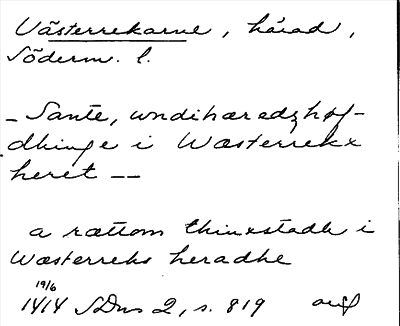 Västerrekarne, härad,
Söderm. l.
– Sante, wndihæredzhøf-
dhinge i Wæsterrekx
heret ——
a rættom thinxstadh i
Wæsterreks heradhe
19/6
1414 SDns 2, s. 819